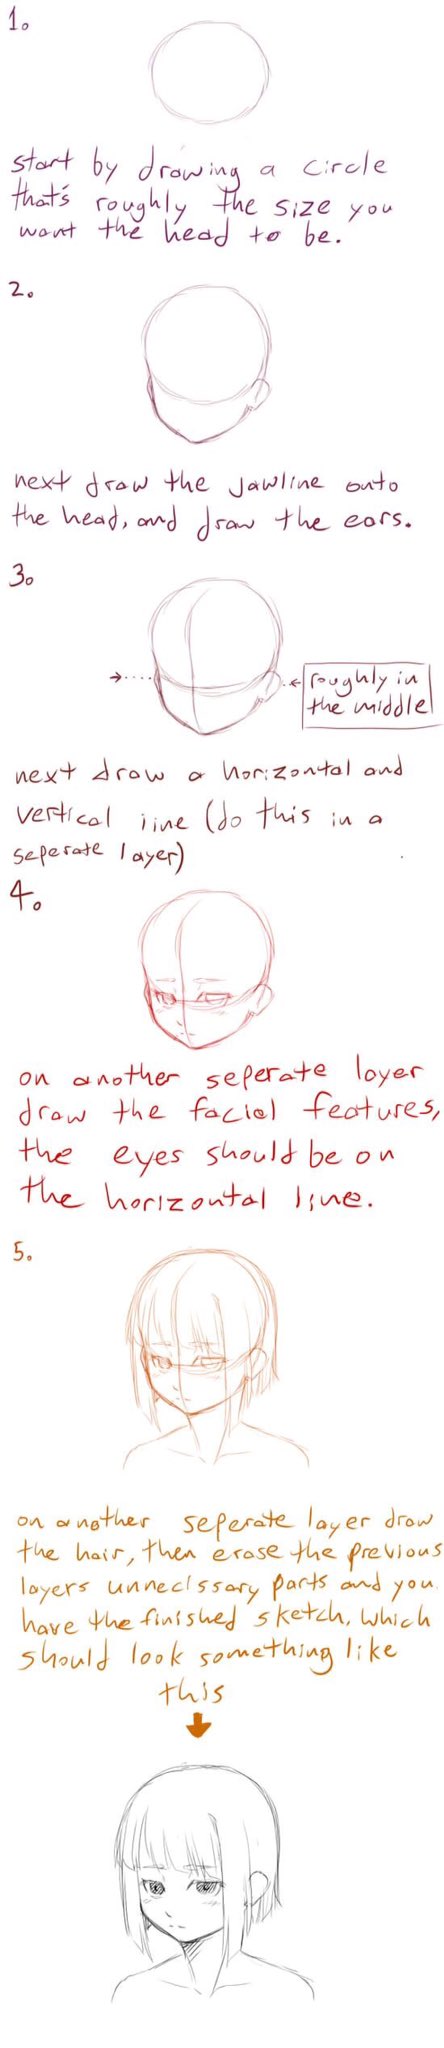 1.
start by drawing a circle
that's roughly the size you
want the head to be.
2.
next draw the jawline onto
the head, and draw the ears.
3.
roughly in
the middle
next draw a horizontal and
vertical line (do this in a
seperate layer)
4.
on another seperate layer
draw the facial features,
the eyes should be on
the horizontal line.
5.
on another seperate layer draw
the hair, then erase the previous
layers unnecissary parts and you
have the finished sketch, which
should look something like
this